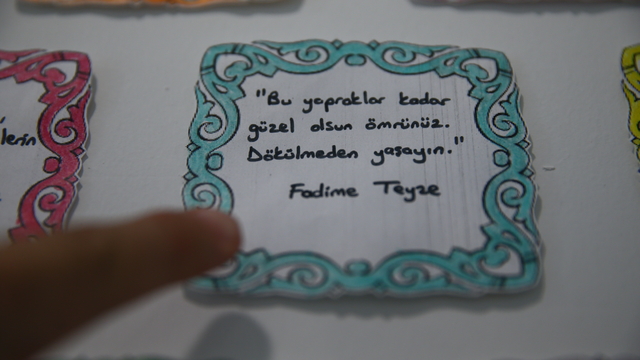 "Bu yapraklar kadar
güzel olsun ömrünüz.
Dökülmeden yaşayın."
Fadime Teyze
lerin